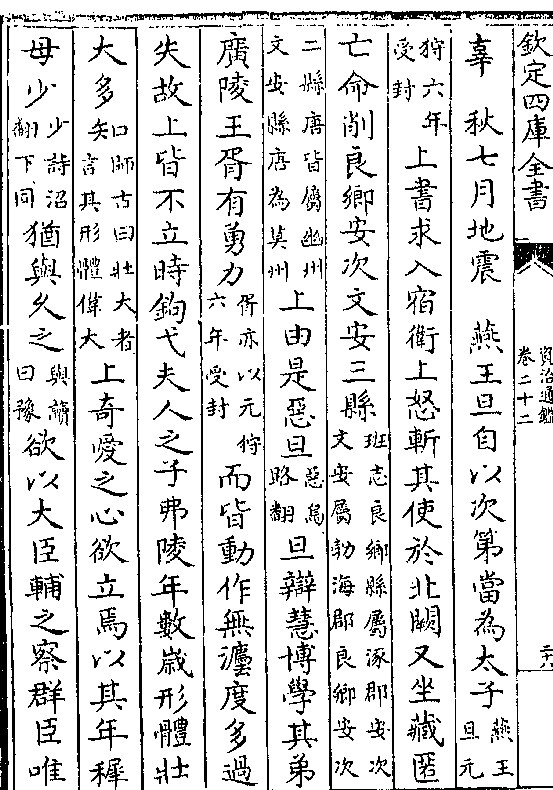 欽定四庫全書
資治通鑑
卷二十二
辜　秋七月地震　燕王旦自以次第當為太子燕王旦元
狩六年受封上書求入宿衛上怒斬其使於北闕又坐藏匿
亡命削良鄉安次文安三縣班志良鄉縣屬涿郡安次文安屬勃海郡良鄉安次
二縣唐皆屬幽州文安縣唐為莫州上由是惡旦惡烏路翻旦辯慧博學其弟
廣陵王胥有勇力胥亦以元狩六年受封而皆動作無灋度多過
失故上皆不立時鉤弋夫人之子弗陵年數歲形體壯
大多知師古曰壯大者言其形體偉大上奇愛之心欲立焉以其年穉
母少少詩沼翻下同猶與久之與讀曰豫欲以大臣輔之察群臣唯